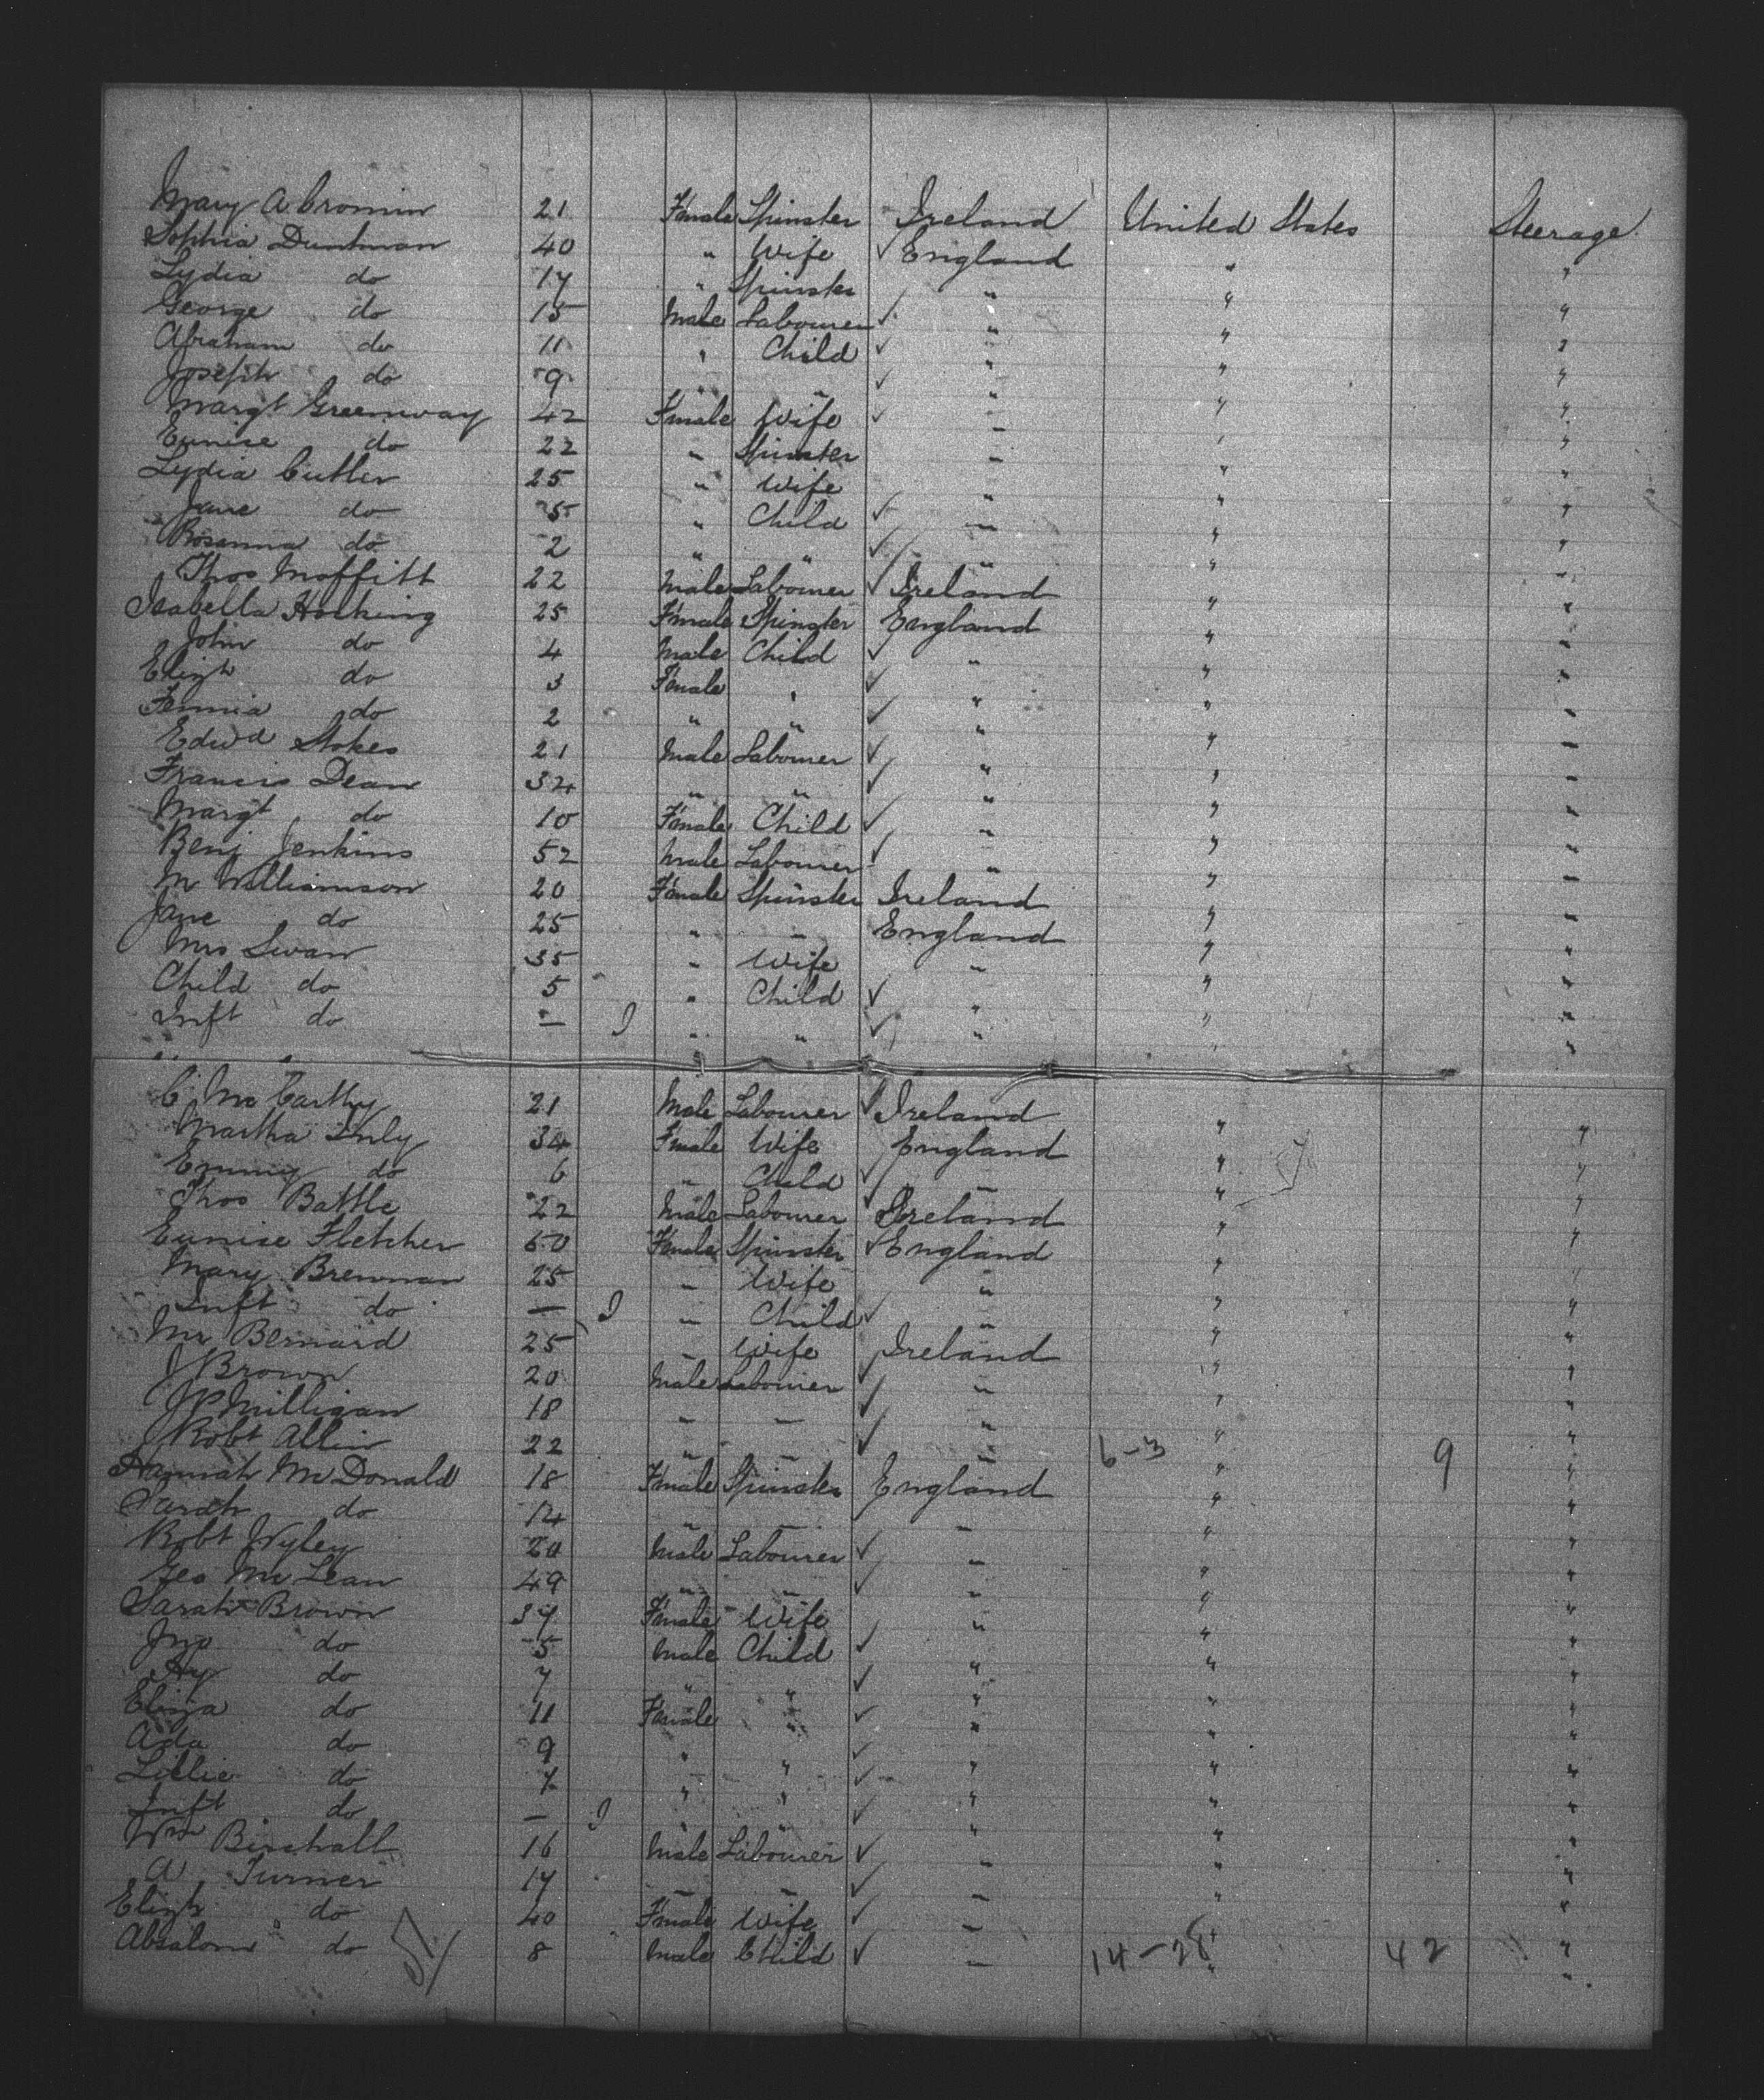 Mary A Cronin 21 Female Spinster Ireland United States Steerage
Sophia Duntman 40 " Wife ✓ England " "
Lydia do 17 " Spinster " " "
George do 15 Male Labourer ✓ " " "
Abraham do 11 " Child ✓ " " "
Joseph do 9 " ✓ " " "
Margt Greenway 42 Female Wife ✓ " " "
Eunise do 22 " Spinster " " "
Lydia Cutler 25 " Wife " " "
Jane do 5 " Child ✓ " " "
Rosanna do 2 " " ✓ " " "
Thos Moffitt 22 Male Labourer ✓ Ireland " "
Isabella Hocking 25 Female Spinster England " "
John do 4 Male Child ✓ " " "
Elizh do 3 Female " ✓ " " "
do 2 " " ✓ " " "
Edwd Stokes 21 Male Labourer ✓ " " "
Francis Dean 34 " " ✓ " " "
Margt do 10 Female Child ✓ " " "
Benj Jenkins 52 Male Labourer ✓ " " "
M Williamson 20 Female Spinster Ireland " "
Jane do 25 " " England " "
Mrs Swan 35 " Wife " " "
Child do 5 " Child ✓ " " "
Inft do — I " " ✓ " " "
C McCarthy 21 Male Labourer ✓ Ireland " "
Martha 34 Female Wife England " "
Emmy do 6 " Child ✓ " " "
Thos Battle 22 Male Labourer ✓ Ireland " "
Eunise Fletcher 60 Female Spinster ✓ England " "
Mary Brennan 25 " Wife " " "
Inft do — I " Child ✓ " " "
Mr Bernard 25 " Wife Ireland " "
J Brown 20 Male Labourer ✓ " " "
J P Milligan 18 " " ✓ " " "
Robt Allin 22 " " ✓ " 6-3 " 9 "
Hannah McDonald 18 Female Spinster England " "
Sarah do 14 " " " " "
Robt Wyley 20 Male Labourer ✓ " " "
Geo McLean 49 " " ✓ " " "
Sarah Brown 37 Female Wife " " "
Jno do 5 Male Child ✓ " " "
Hy do 7 " " ✓ " " "
Eliza do 11 Female " ✓ " " "
Ada do 9 " " ✓ " " "
Lillie do 7 " " ✓ " " "
Inft do — I " " ✓ " " "
Wm Birchall 16 Male Labourer ✓ " " "
A Turner 17 " " ✓ " " "
Elizh do 40 Female Wife ✓ " " "
Absalom do 8 Male Child ✓ " 14-28 " 42 "